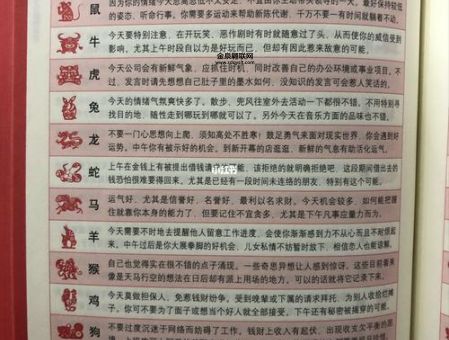 鼠
的姿态、听命行事。你需要多运动来帮助新陈代谢,千万不要一有时间就躺着不动。
金泉翩联网
牛
今天要特别注意,在开玩笑、恶作剧时有时就随意过了头,从而使你的威信受到
影响,尤其上午时段自以为是好玩而已,但却有因此惹来敌意的可能。
虎
今天公司会有新鲜气象,应抓住时机,同时改善自己的办公环境或事业项目。不
过,发言时请先想想自己肚子里的墨水如何,没知识的发言可会惹人笑话的。
兔
今天的情绪气氛爽快多了。散步、兜风往室外去活动一下都很不错,不用特别寻
找目的地,随性走到哪玩到哪就可以了。另外今天在音乐方面的品味也不错。
龙
不要一门心思想向上爬,须知高处不胜寒!鼓足勇气来面对现实世界,你会遇到好
运势。中午你有被示好的机会。到新开幕的店逛逛,新鲜的气息有助活化运气。
蛇
上午在金钱上有被提出借钱请
能,该拒绝的就明确拒绝吧,这段期间借出去的
钱恐怕很难要得回来,尤其是已经有一段时间未连络的朋友,特别有这个可能。
小红书
马
运气好,尤其是信誉好、名誉好,最利以名求财。今天机会较多,如何能把握
住就靠你本身的能力了,但要记住不宜贪多,尤其是下午凡事应量力而为。
羊
今天需要不时地去提醒他人留意工作进度,会使你渐渐感到力不从心而且不耐烦起
来。中午过后是你大展拳脚的好机会,儿女私情不妨暂时放下,相信恋人也能谅解。
猴
自己也觉得实在很不错的点子涌现。一些奇思异想让人感到惊讶。这些目前看来
像是天马行空的想法在日后却有派上用场的地方。可以的话就将它记录下来。
鸡
今天莫做担保人,免惹钱财纷争。受到晚辈或下属的请求拜托,为别人收拾烂摊
子。你可不要为了面子或想当个好人就全部接受。下午还有秘密被揭穿的可能。
狗
不要过度沉迷于网络而妨碍了工作。钱财上收入有起伏,出现收支欠平衡的现